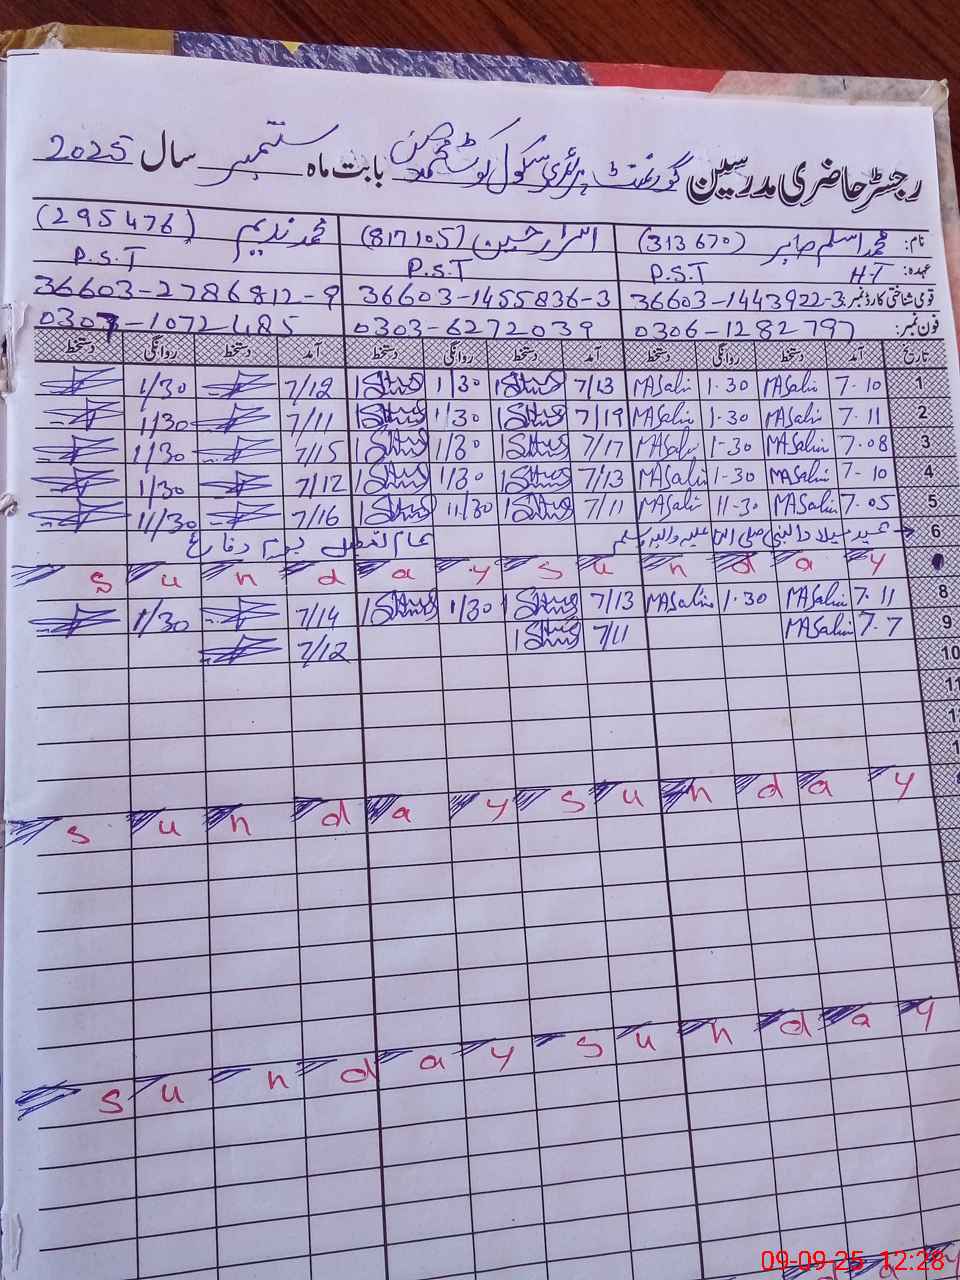 رجسٹر حاضری مدرسین گورنمنٹ پرائمری سکول کوٹ محمد حسن بابت ماہ ستمبر سال 2025
نام: محمد اسلم صابر (313670) اسرار حسین (817105) محمد ندیم (295476)
عہدہ: H.T P.S.T P.S.T P.S.T
قومی شناختی کارڈ نمبر: 36603-1443922-3 36603-1455836-3 36603-2786812-9
فون نمبر: 0306-1282797 0303-6272039 0307-1072485
تاریخ آمد دستخط روانگی دستخط آمد دستخط روانگی دستخط آمد دستخط روانگی دستخط
1 7.10 MASabir 1.30 MASabir 7/13 1/30 7/12 1/30
2 7.11 MASabir 1.30 MASabir 7/19 1/30 7/11 1/30
3 7.08 MASabir 1-30 MASabir 7/17 1/30 7/15 1/30
4 7-10 MASabir 1-30 MASabir 7/13 1/30 7/12 1/30
5 7.05 MASabir 11-30 MASabir 7/11 11/30 7/16 11/30
6 عید میلاد النبی صلی اللہ علیہ وآلہ وسلم عام تعطیل یوم دفاع
S u n d a y S u n d a y
8 7.11 MASabir 1.30 MASabir 7/13 1/30 7/14 1/30
9 7.7 MASabir 7/11 7/12
10
11
S u n d a y S u n d a y
S u n d a y S u n d a y
09-09-25 12:28